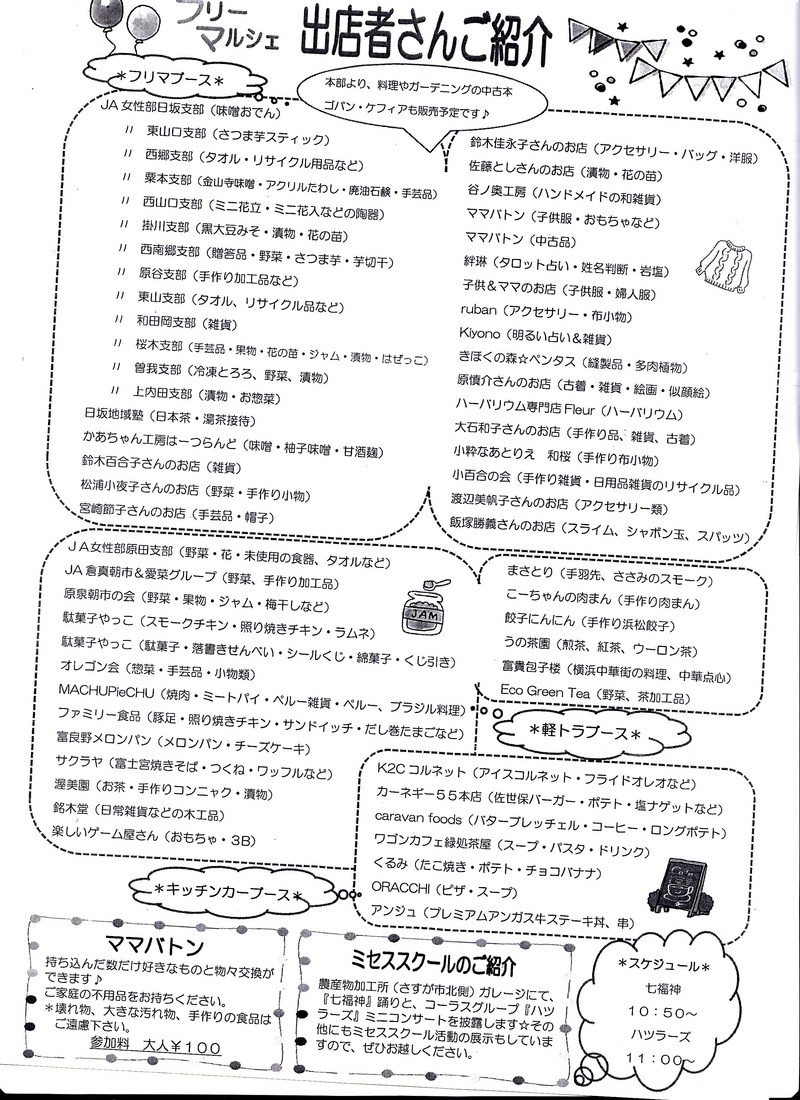 フリー
マルシェ
出店者さんご紹介
＊フリマブース＊
本部より、料理やガーデニングの中古本
ゴパン・ケフィアも販売予定です♪
JA女性部日坂支部（味噌おでん）
〃 東山口支部（さつま芋スティック）
〃 西郷支部（タオル・リサイクル用品など）
〃 粟本支部（金山寺味噌・アクリルたわし・廃油石鹸・手芸品）
〃 西山口支部（ミニ花立・ミニ花入などの陶器）
〃 掛川支部（黒大豆みそ・漬物・花の苗）
〃 西南郷支部（贈答品・野菜・さつま芋・芋切干）
〃 原谷支部（手作り加工品など）
〃 東山支部（タオル、リサイクル品など）
〃 和田岡支部（雑貨）
〃 桜木支部（手芸品・果物・花の苗・ジャム・漬物・はぜっこ）
〃 曽我支部（冷凍とろろ、野菜、漬物）
〃 上内田支部（漬物・お惣菜）
日坂地域塾（日本茶・湯茶接待）
かあちゃん工房はーつらんど（味噌・柚子味噌・甘酒麹）
鈴木百合子さんのお店（雑貨）
松浦小夜子さんのお店（野菜・手作り小物）
宮崎節子さんのお店（手芸品・帽子）
鈴木佳永子さんのお店（アクセサリー・バッグ・洋服）
佐藤としさんのお店（漬物・花の苗）
谷ノ奥工房（ハンドメイドの和雑貨）
ママバトン（子供服・おもちゃなど）
ママバトン（中古品）
絆琳（タロット占い・姓名判断・岩塩）
子供＆ママのお店（子供服・婦人服）
ruban（アクセサリー・布小物）
Kiyono（明るい占い＆雑貨）
きぼくの森☆ペンタス（縫製品・多肉植物）
原慎介さんのお店（古着・雑貨・絵画・似顔絵）
ハーバリウム専門店Fleur（ハーバリウム）
大石和子さんのお店（手作り品、雑貨、古着）
小粋なあとりえ 和桜（手作り布小物）
小百合の会（手作り雑貨・日用品雑貨のリサイクル品）
渡辺美帆子さんのお店（アクセサリー類）
飯塚勝義さんのお店（スライム、シャボン玉、スパッツ）
ＪＡ女性部原田支部（野菜・花・未使用の食器、タオルなど）
JA倉真朝市＆愛菜グループ（野菜、手作り加工品）
原泉朝市の会（野菜・果物・ジャム・梅干しなど）
駄菓子やっこ（スモークチキン・照り焼きチキン・ラムネ）
駄菓子やっこ（駄菓子・落書きせんべい・シールくじ・綿菓子・くじ引き）
オレゴン会（惣菜・手芸品・小物類）
MACHUPieCHU（焼肉・ミートパイ・ペルー雑貨・ペルー、ブラジル料理）
ファミリー食品（豚足・照り焼きチキン・サンドイッチ・だし巻たまごなど）
富良野メロンパン（メロンパン・チーズケーキ）
サクラヤ（富士宮焼きそば・つくね・ワッフルなど）
渥美園（お茶・手作りコンニャク・漬物）
銘木堂（日常雑貨などの木工品）
楽しいゲーム屋さん（おもちゃ・３B）
JAM
まさとり（手羽先、ささみのスモーク）
こーちゃんの肉まん（手作り肉まん）
餃子にんにん（手作り浜松餃子）
うの茶園（煎茶、紅茶、ウーロン茶）
富貴包子楼（横浜中華街の料理、中華点心）
Eco Green Tea（野菜、茶加工品）
＊軽トラブース＊
K2Cコルネット（アイスコルネット・フライドオレオなど）
カーネギー５５本店（佐世保バーガー・ポテト・塩ナゲットなど）
caravan foods（バタープレッチェル・コーヒー・ロングポテト）
ワゴンカフェ緑処茶屋（スープ・パスタ・ドリンク）
くるみ（たこ焼き・ポテト・チョコバナナ）
ORACCHI（ピザ・スープ）
アンジュ（プレミアムアンガス牛ステーキ丼、串）
＊キッチンカーブース＊
ママバトン
持ち込んだ数だけ好きなものと物々交換が
できます♪
ご家庭の不用品をお持ちください。
＊壊れ物、大きな汚れ物、手作りの食品は
ご遠慮下さい。
参加料 大人￥１００
ミセススクールのご紹介
農産物加工所（さすが市北側）ガレージにて、
『七福神』踊りと、コーラスグループ『ハツ
ラーズ』ミニコンサートを披露します☆その
他にもミセススクール活動の展示もしていま
すので、ぜひお越しください。
＊スケジュール＊
七福神
１０：５０～
ハツラーズ
１１：００～